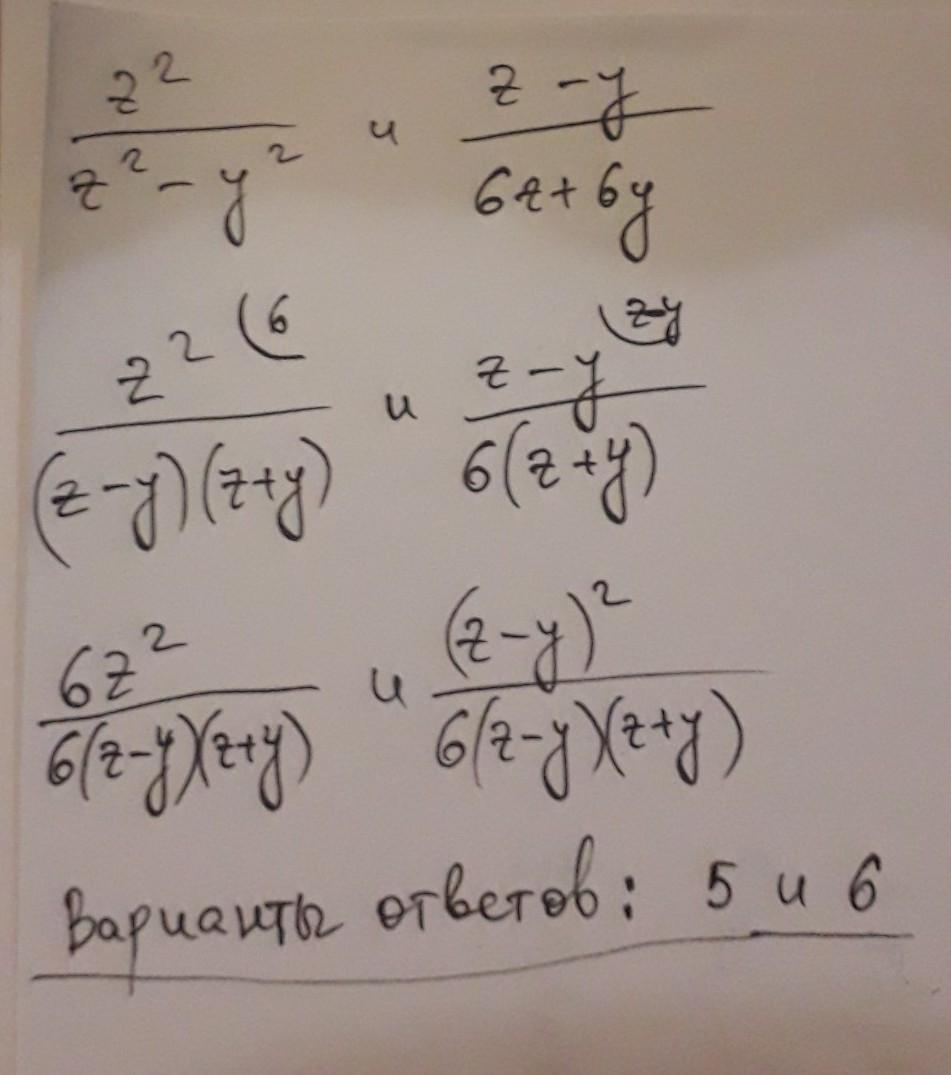 z² / (z² − y²) и (z − y) / (6z + 6y)
z² (6 / (z−y)(z+y) и z − y (z−y / 6(z+y)
6z² / 6(z−y)(z+y) и (z−y)² / 6(z−y)(z+y)
Варианты ответов: 5 и 6